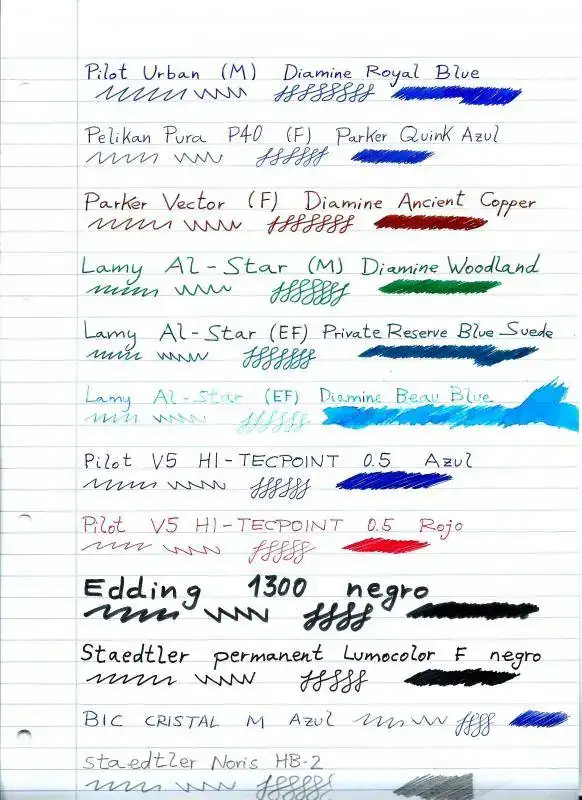 Pilot Urban (M) Diamine Royal Blue
Pelikan Pura P40 (F) Parker Quink Azul
Parker Vector (F) Diamine Ancient Copper
Lamy Al-Star (M) Diamine Woodland
Lamy Al-Star (EF) Private Reserve Blue Suede
Lamy Al-Star (EF) Diamine Beau Blue
Pilot V5 HI-TECPOINT 0.5 Azul
Pilot V5 HI-TECPOINT 0.5 Rojo
Edding 1300 negro
Staedtler permanent Lumocolor F negro
BIC CRISTAL M Azul
Staedtler Noris HB-2